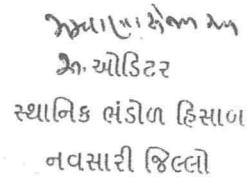 સ. ઓડિટર
સ્થાનિક ભંડોળ હિસાબ
નવસારી જિલ્લો